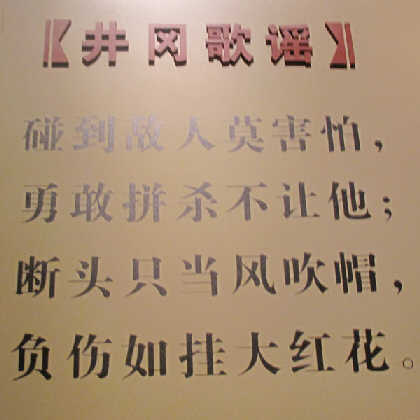 【井冈歌谣】
碰到敌人莫害怕，
勇敢拼杀不让他；
断头只当风吹帽，
负伤如挂大红花。